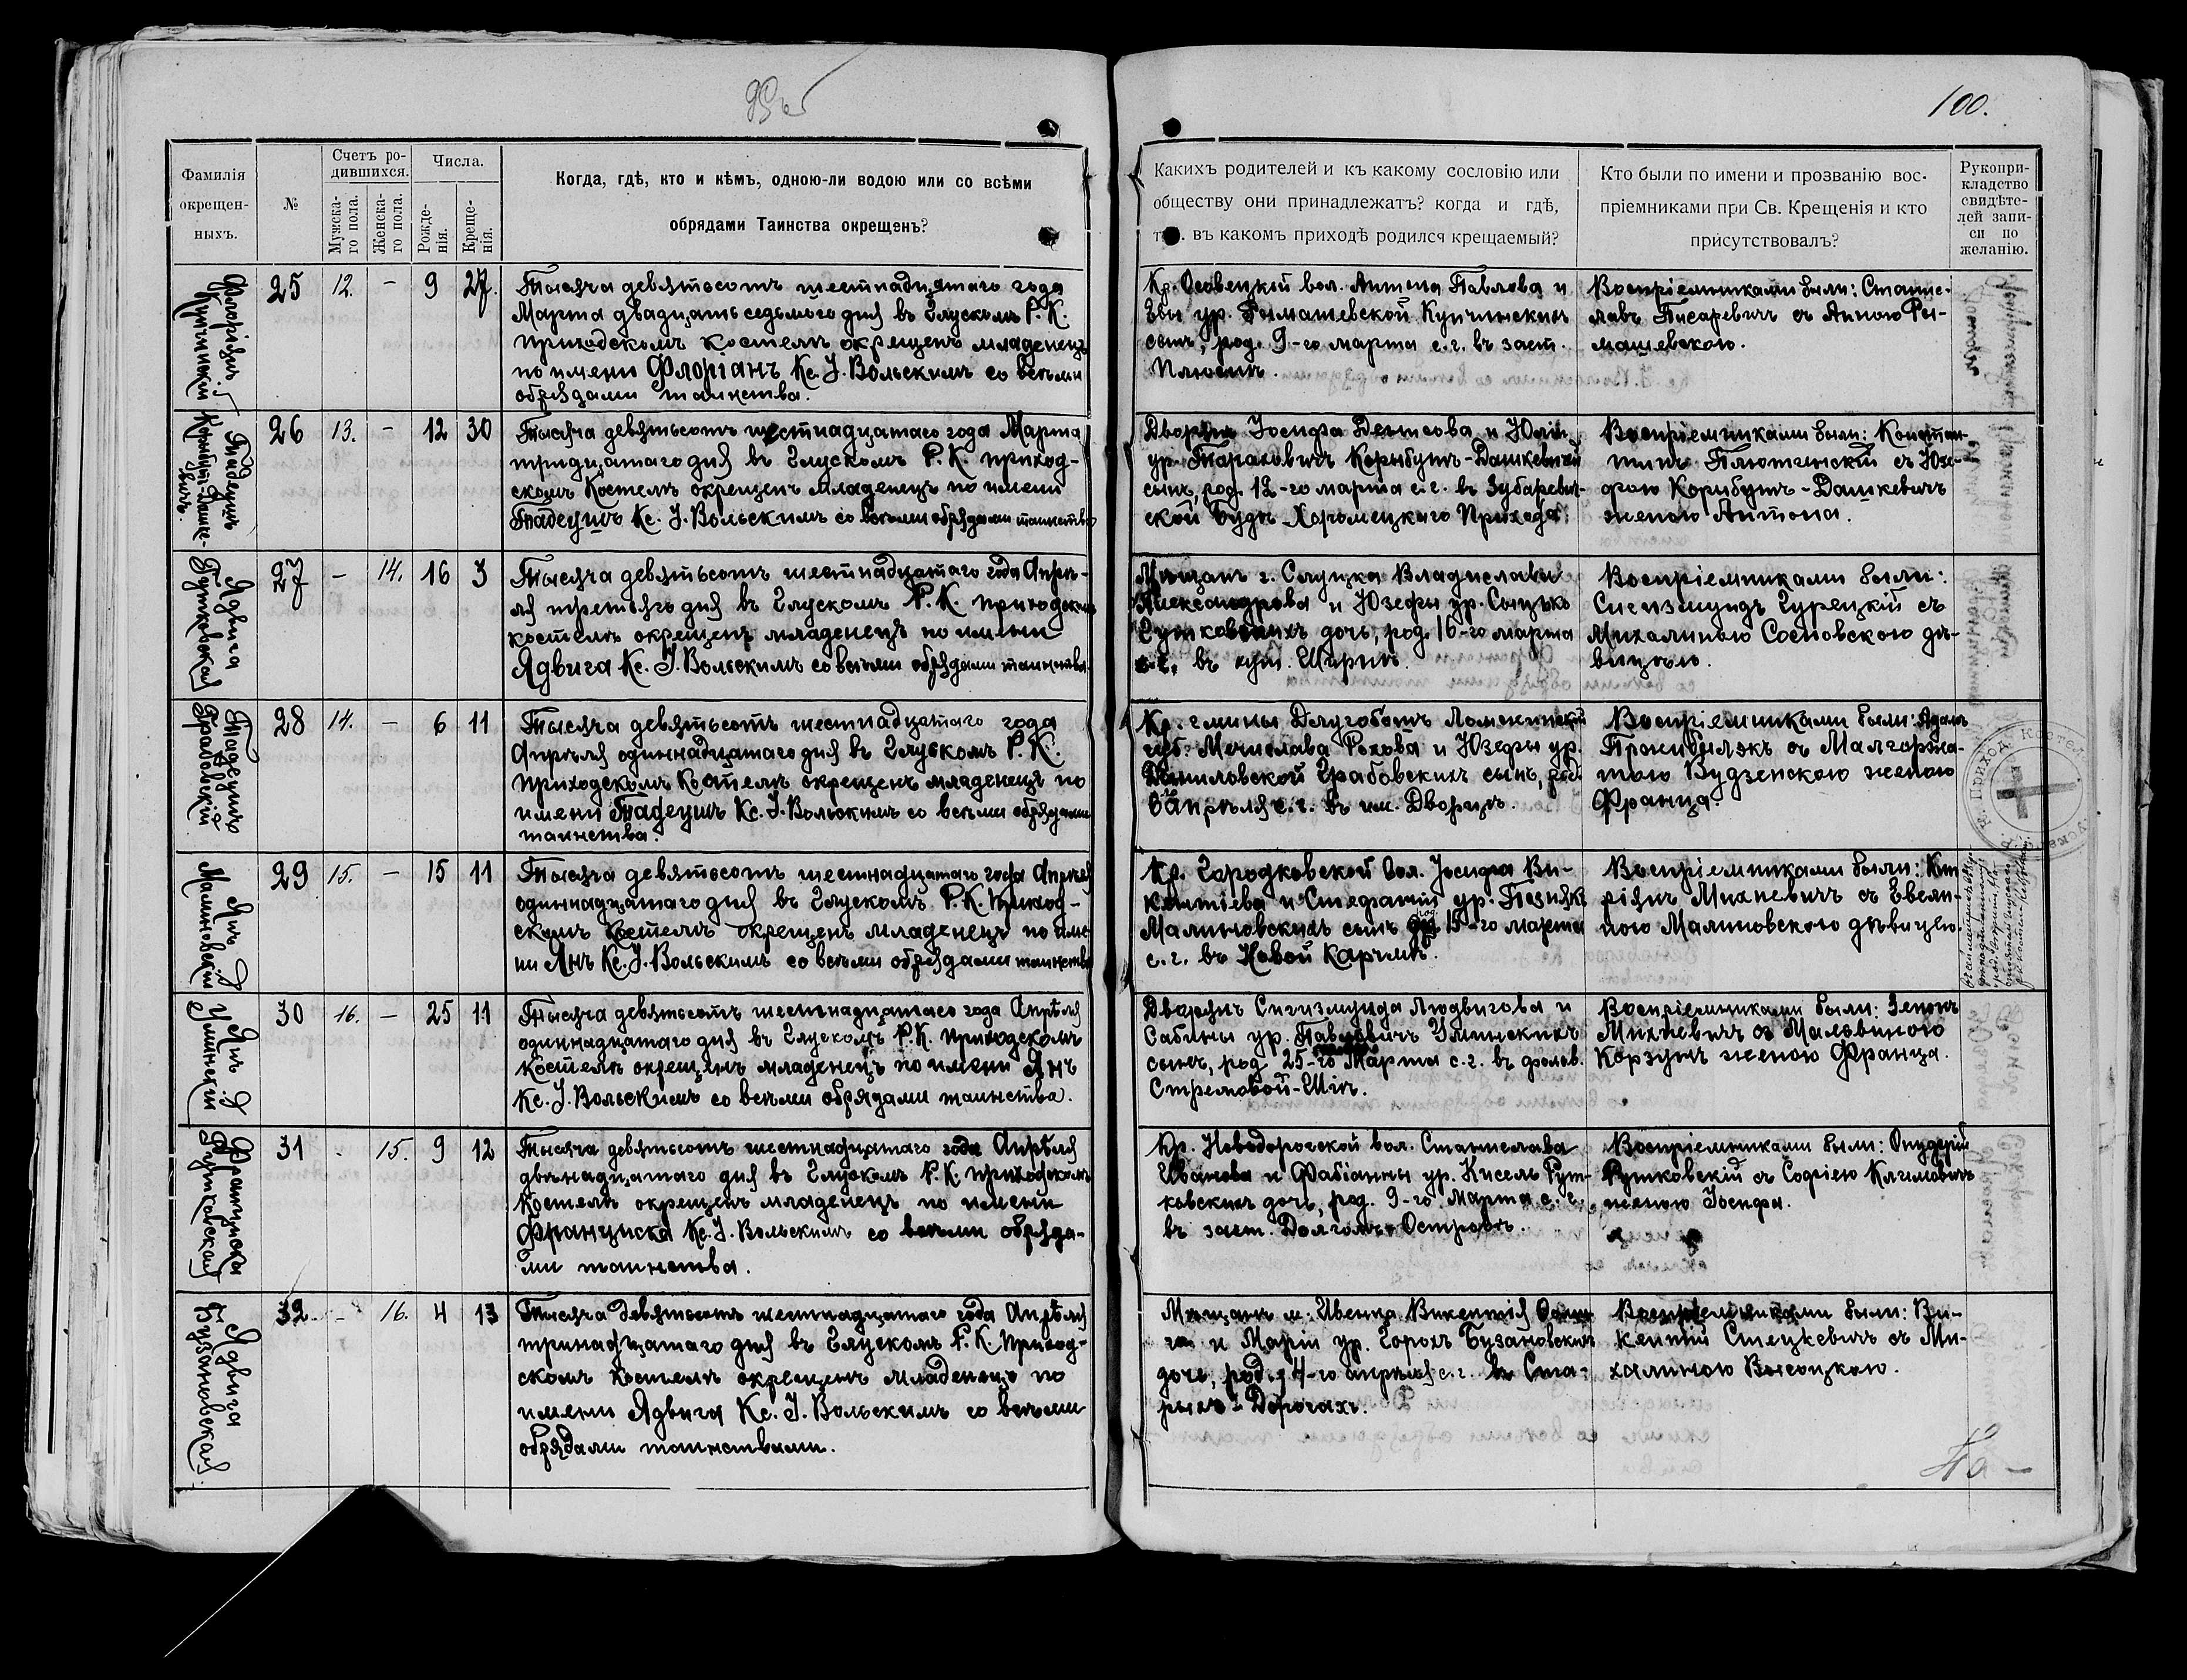 100.
Фамилія
окрещен-
ныхъ.
№
Счетъ ро-
дившихся.
Мужска-
го пола.
Женска-
го пола.
Числа.
Рожде-
нія.
Креще-
нія.
Когда, гдѣ, кто и кѣмъ, одною-ли водою или со всѣми
обрядами Таинства окрещенъ?
Какихъ родителей и къ какому сословію или
обществу они принадлежатъ? когда и гдѣ,
въ какомъ приходѣ родился крещаемый?
Кто были по имени и прозванію вос-
пріемниками при Св. Крещенія и кто
присутствовалъ?
Рукопри-
кладство
свидѣте-
лей запи-
си по
желанію.
Флоріянъ
Купчинскій
25 12. - 9 27.
Тысяча девятьсотъ шестнадцатаго года
Марта двадцать седьмого дня въ Глускомъ Р. К.
приходскомъ костелѣ окрещенъ младенецъ
по имени Флоріанъ Кс. І. Вольскимъ со всѣми
обрядами таинства.
Кр. Осовецкой вол. Антона Павлова и
Евы ур. Ромашевской Купчинскихъ
сынъ, род. 9-го марта с. г. въ заст.
Плюсинъ.
Воспріемниками были: Станис-
лавъ Писаревичъ съ Анною Ро-
машевскою.
Тадеушъ
Корыбутъ-Дашке-
вичъ.
26 13. - 12 30
Тысяча девятьсотъ шестнадцатаго года Марта
тридцатаго дня въ Глускомъ Р. К. приход-
скомъ Костелѣ окрещенъ младенецъ по имени
Тадеушъ Кс. І. Вольскимъ со всѣми обрядами таинства
Дворянъ Іосифа Денисова и Юліи
ур. Тарасовичъ Корыбутъ-Дашкевичей
сынъ, род. 12-го марта с. г. въ Зубаревич-
ской Будѣ Хоромецкаго Прихода.
Воспріемниками были: Констан-
тинъ Плютинскій съ Юзе-
фою Корибутъ-Дашкевичъ
женою Антона.
Ядвига
Гутковская
27 - 14. 16 3
Тысяча девятьсотъ шестнадцатаго года Апрѣ-
ля третьяго дня въ Глускомъ Р. К. приходскомъ
костелѣ окрещенъ младенецъ по имени
Ядвига Кс. І. Вольскимъ со всѣми обрядами таинства.
Мѣщанъ г. Слуцка Владислава
Александрова и Юзефы ур. Сыцько
Гутковскихъ дочь, род. 16-го марта
с. г. въ Ширинѣ.
Воспріемниками были:
Сигизмундъ Гурецкій съ
Михалиною Сосновскою дѣ-
вицею.
Тадеушъ
Грабовскій
28 14. - 6 11
Тысяча девятьсотъ шестнадцатаго года
Апрѣля одиннадцатаго дня въ Глускомъ Р. К.
приходскомъ Костелѣ окрещенъ младенецъ по
имени Тадеушъ Кс. І. Вольскимъ со всѣми обрядами
таинства.
Кр. гмины Длугоботъ Ломжинской
губ. Мечислава Рохова и Юзефы ур.
Даниловской Грабовскихъ сынъ, род.
6 Апрѣля с. г. въ им. Дворцѣ.
Воспріемниками были: Адамъ
съ Малгоржа-
тою Будзенскою женою
Франца.
Янъ
Малиновскій
29 15. - 15 11
Тысяча девятьсотъ шестнадцатаго года Апрѣля
одиннадцатаго дня въ Глускомъ Р. К. Приход-
скомъ Костелѣ окрещенъ младенецъ по име-
ни Янъ Кс. І. Вольскимъ со всѣми обрядами таинства
Кр. Городковской вол. Іосифа Ви-
кентіева и Стефаніи ур. Позняк
Малиновскихъ сынъ 15-го марта
с. г. въ Новой Карчмѣ.
Воспріемниками были: Кип-
ріянъ Михневичъ съ Евели-
ною Малиновскою дѣвицею.
Янъ
Улинскій
30 16. - 25 11
Тысяча девятьсотъ шестнадцатаго года Апрѣля
одиннадцатаго дня въ Глускомъ Р. К. приходскомъ
костелѣ окрещенъ младенецъ по имени Янъ
Кс. І. Вольскимъ со всѣми обрядами таинства.
Дворянъ Сигизмунда Людвигова и
Сабины ур. Павловичъ Улинскихъ
сынъ, род 25-го Марта с. г. въ фольв.
Стремовой-Шія.
Воспріемниками были: Зенонъ
Михневичъ съ Мальвиною
Корзунъ женою Франца.
Франциска
Рутковская
31 - 15. 9 12
Тысяча девятьсотъ шестнадцатаго года Апрѣля
двѣнадцатаго дня въ Глускомъ Р. К. приходскомъ
Костелѣ окрещенъ младенецъ по имени
Франциска Кс. І. Вольскимъ со всѣми обряда-
ми таинства.
Кр. Новодорогской вол. Станислава
Иванова и Фабіанны ур. Кисель Рут-
ковскихъ дочь, род. 9-го Марта с. г.
въ заст. Долгомъ-Островѣ.
Воспріемниками были:
Рутковскій съ Софіею Климовичъ
женою Іосифа.
Ядвига
Бузановская.
32. - 16. 4 13
Тысяча девятьсотъ шестнадцатаго года Апрѣля
тринадцатаго дня въ Глускомъ Р. К. приход-
скомъ костелѣ окрещенъ младенецъ по
имени Ядвига Кс. І. Вольскимъ со всѣми
обрядами таинствами.
Мѣщанъ м. Ивенца Викентія
и Маріи ур. Горохъ Бузановскихъ
дочь, род. 4-го апрѣля с. г. въ Ста-
рыхъ-Дорогахъ.
Воспріемниками были: Ви-
кентій Стецкевичъ съ Ми-
халиною Высоцкою.